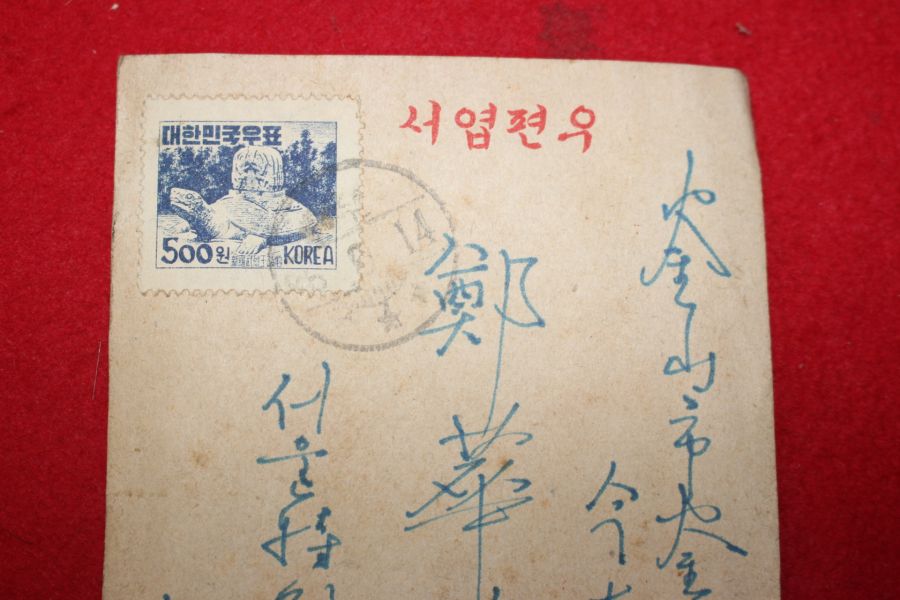 대한민국우표
500원 KOREA
우편엽서
14
釜山市釜
鄭華
서울特